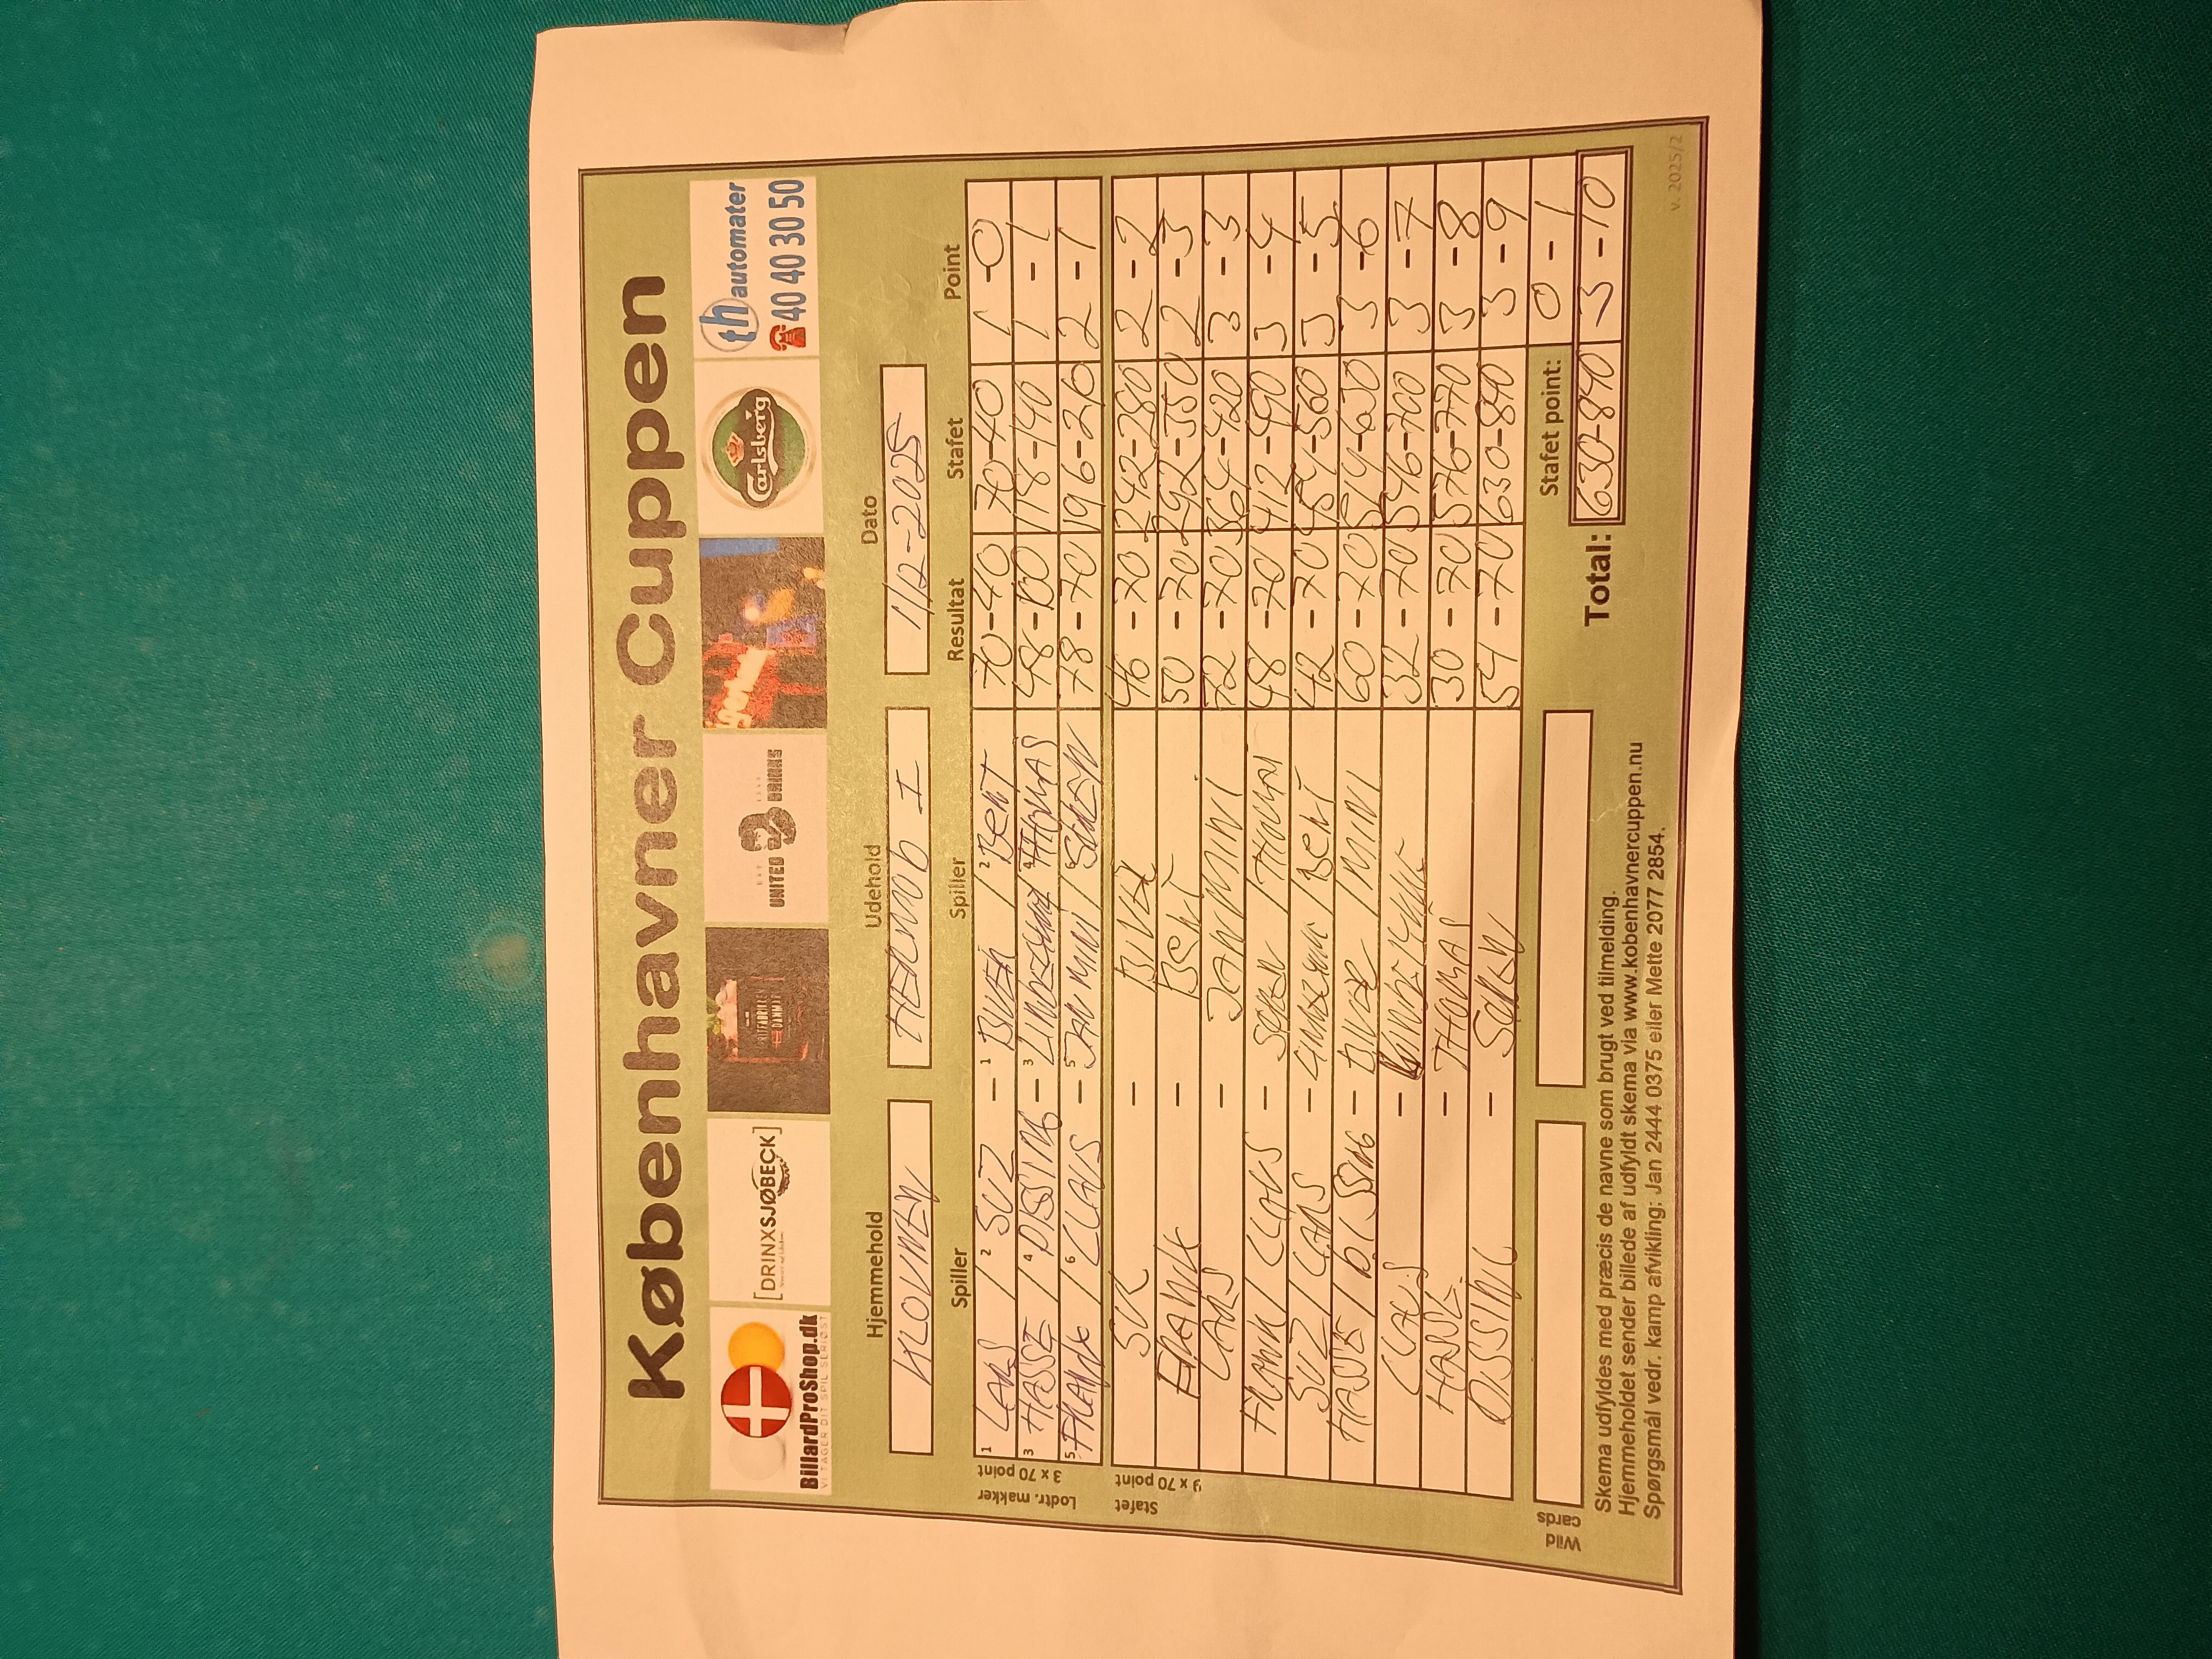 Københavner Cuppen
BillardProShop.dk
VI TAGER DIT SPIL SERIØST
[DRINXSJØBECK]
UNITED DRINKS
Carlsberg
th automater
40 40 30 50
Hjemmehold Udehold Dato
KLOVNEN HERMOD I 1/12-2025
Spiller Spiller Resultat Stafet Point
Lodtr. makker 3 x 70 point
1 LARS / 2 SUZ - 1 / 2 BENT 70-40 70-40 1-0
3 HASSE / 4 DISSING - 3 / 4 THOMAS 48-100 118-140 1-1
5 FRANK / 6 CLAUS - 5 JAN MINI / 6 SØREN 78-70 196-210 2-1
Stafet 9 x 70 point
- 46-70 242-280 2-2
FRANK - BENT 50-70 292-350 2-3
LARS - JAN MINI 72-70 364-420 3-3
FRANK / CLAUS - SØREN / THOMAS 48-70 412-490 3-4
SUZ / LARS - / BENT 42-70 454-560 3-5
HASSE / DISSING - / MINI 60-70 514-630 3-6
CLAUS - 32-70 546-700 3-7
HASSE - THOMAS 30-70 576-770 3-8
DISSING - SØREN 54-70 630-840 3-9
Wild cards
Stafet point: 0-1
Total: 630-840 3-10
Skema udfyldes med præcis de navne som brugt ved tilmelding.
Hjemmeholdet sender billede af udfyldt skema via www.kobenhavnercuppen.nu
Spørgsmål vedr. kamp afvikling: Jan 2444 0375 eller Mette 2077 2854.
v. 2025/2